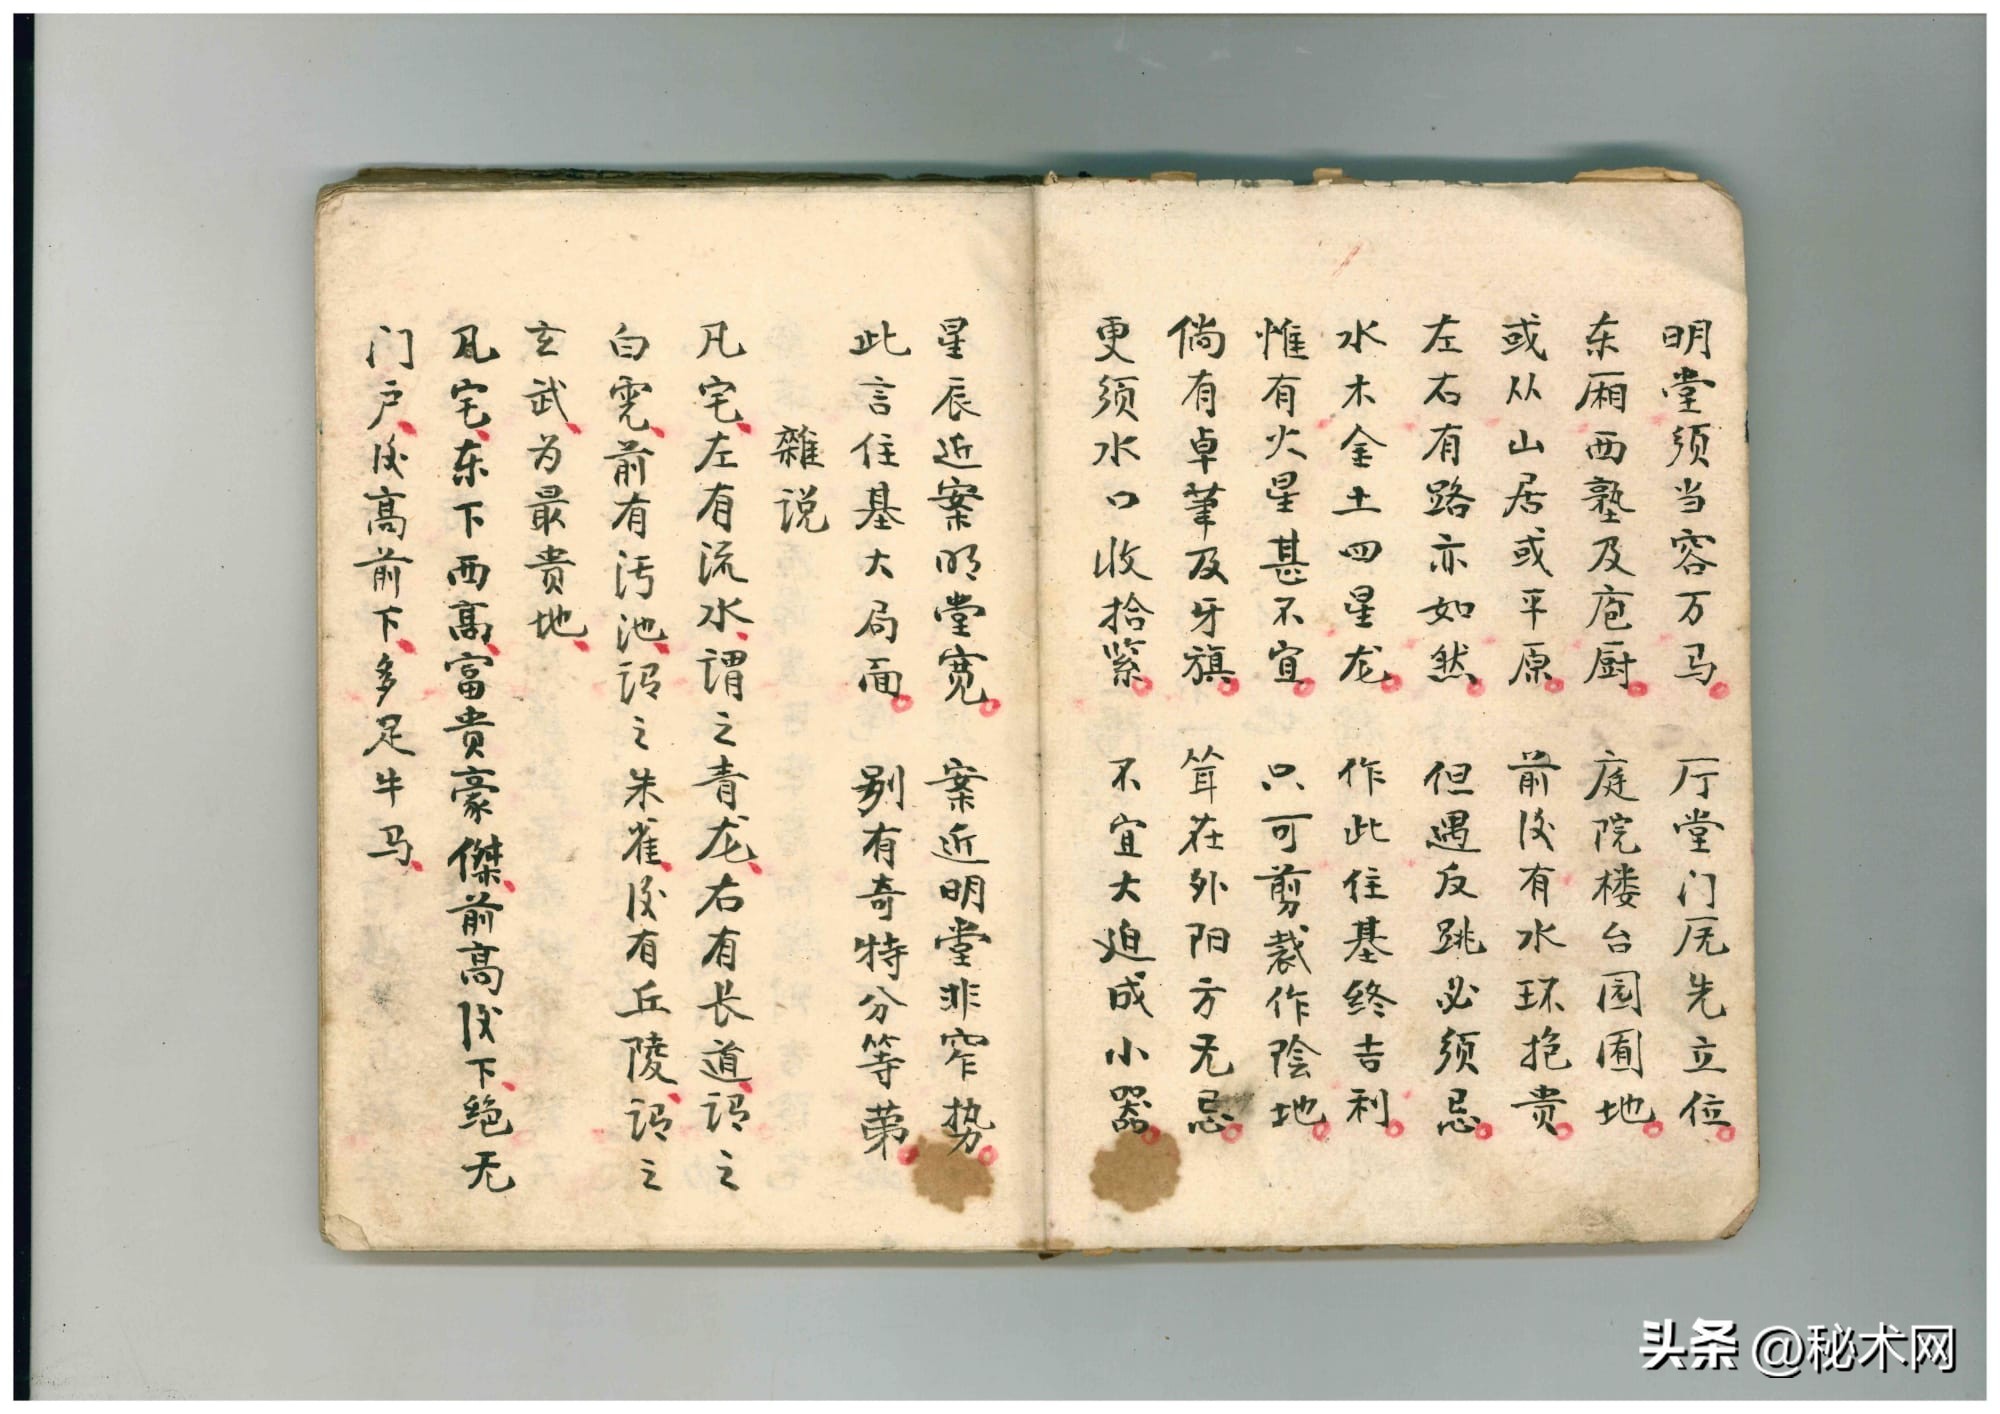 明堂须当容万马 厅堂门庑先立位
东厢西塾及庖厨 庭院楼台园囿地
或从山居或平原 前后有水环抱贵
左右有路亦如然 但遇反跳必须忌
水木金土四星龙 作此住基终吉利
惟有火星甚不宜 只可剪裁作阴地
倘有卓筆及牙旗 耸在外阳方无忌
更须水口收拾紧 不宜大迫成小器
星辰近案明堂宽 案近明堂非窄势
此言住基大局面 别有奇特分等第
雜说
凡宅左有流水谓之青龙右有长道谓之
白虎前有污池谓之朱雀后有丘陵谓之
玄武为最贵地
凡宅东下西高富贵豪傑前高后下绝无
门户后高前下多足牛马
头条 @秘术网